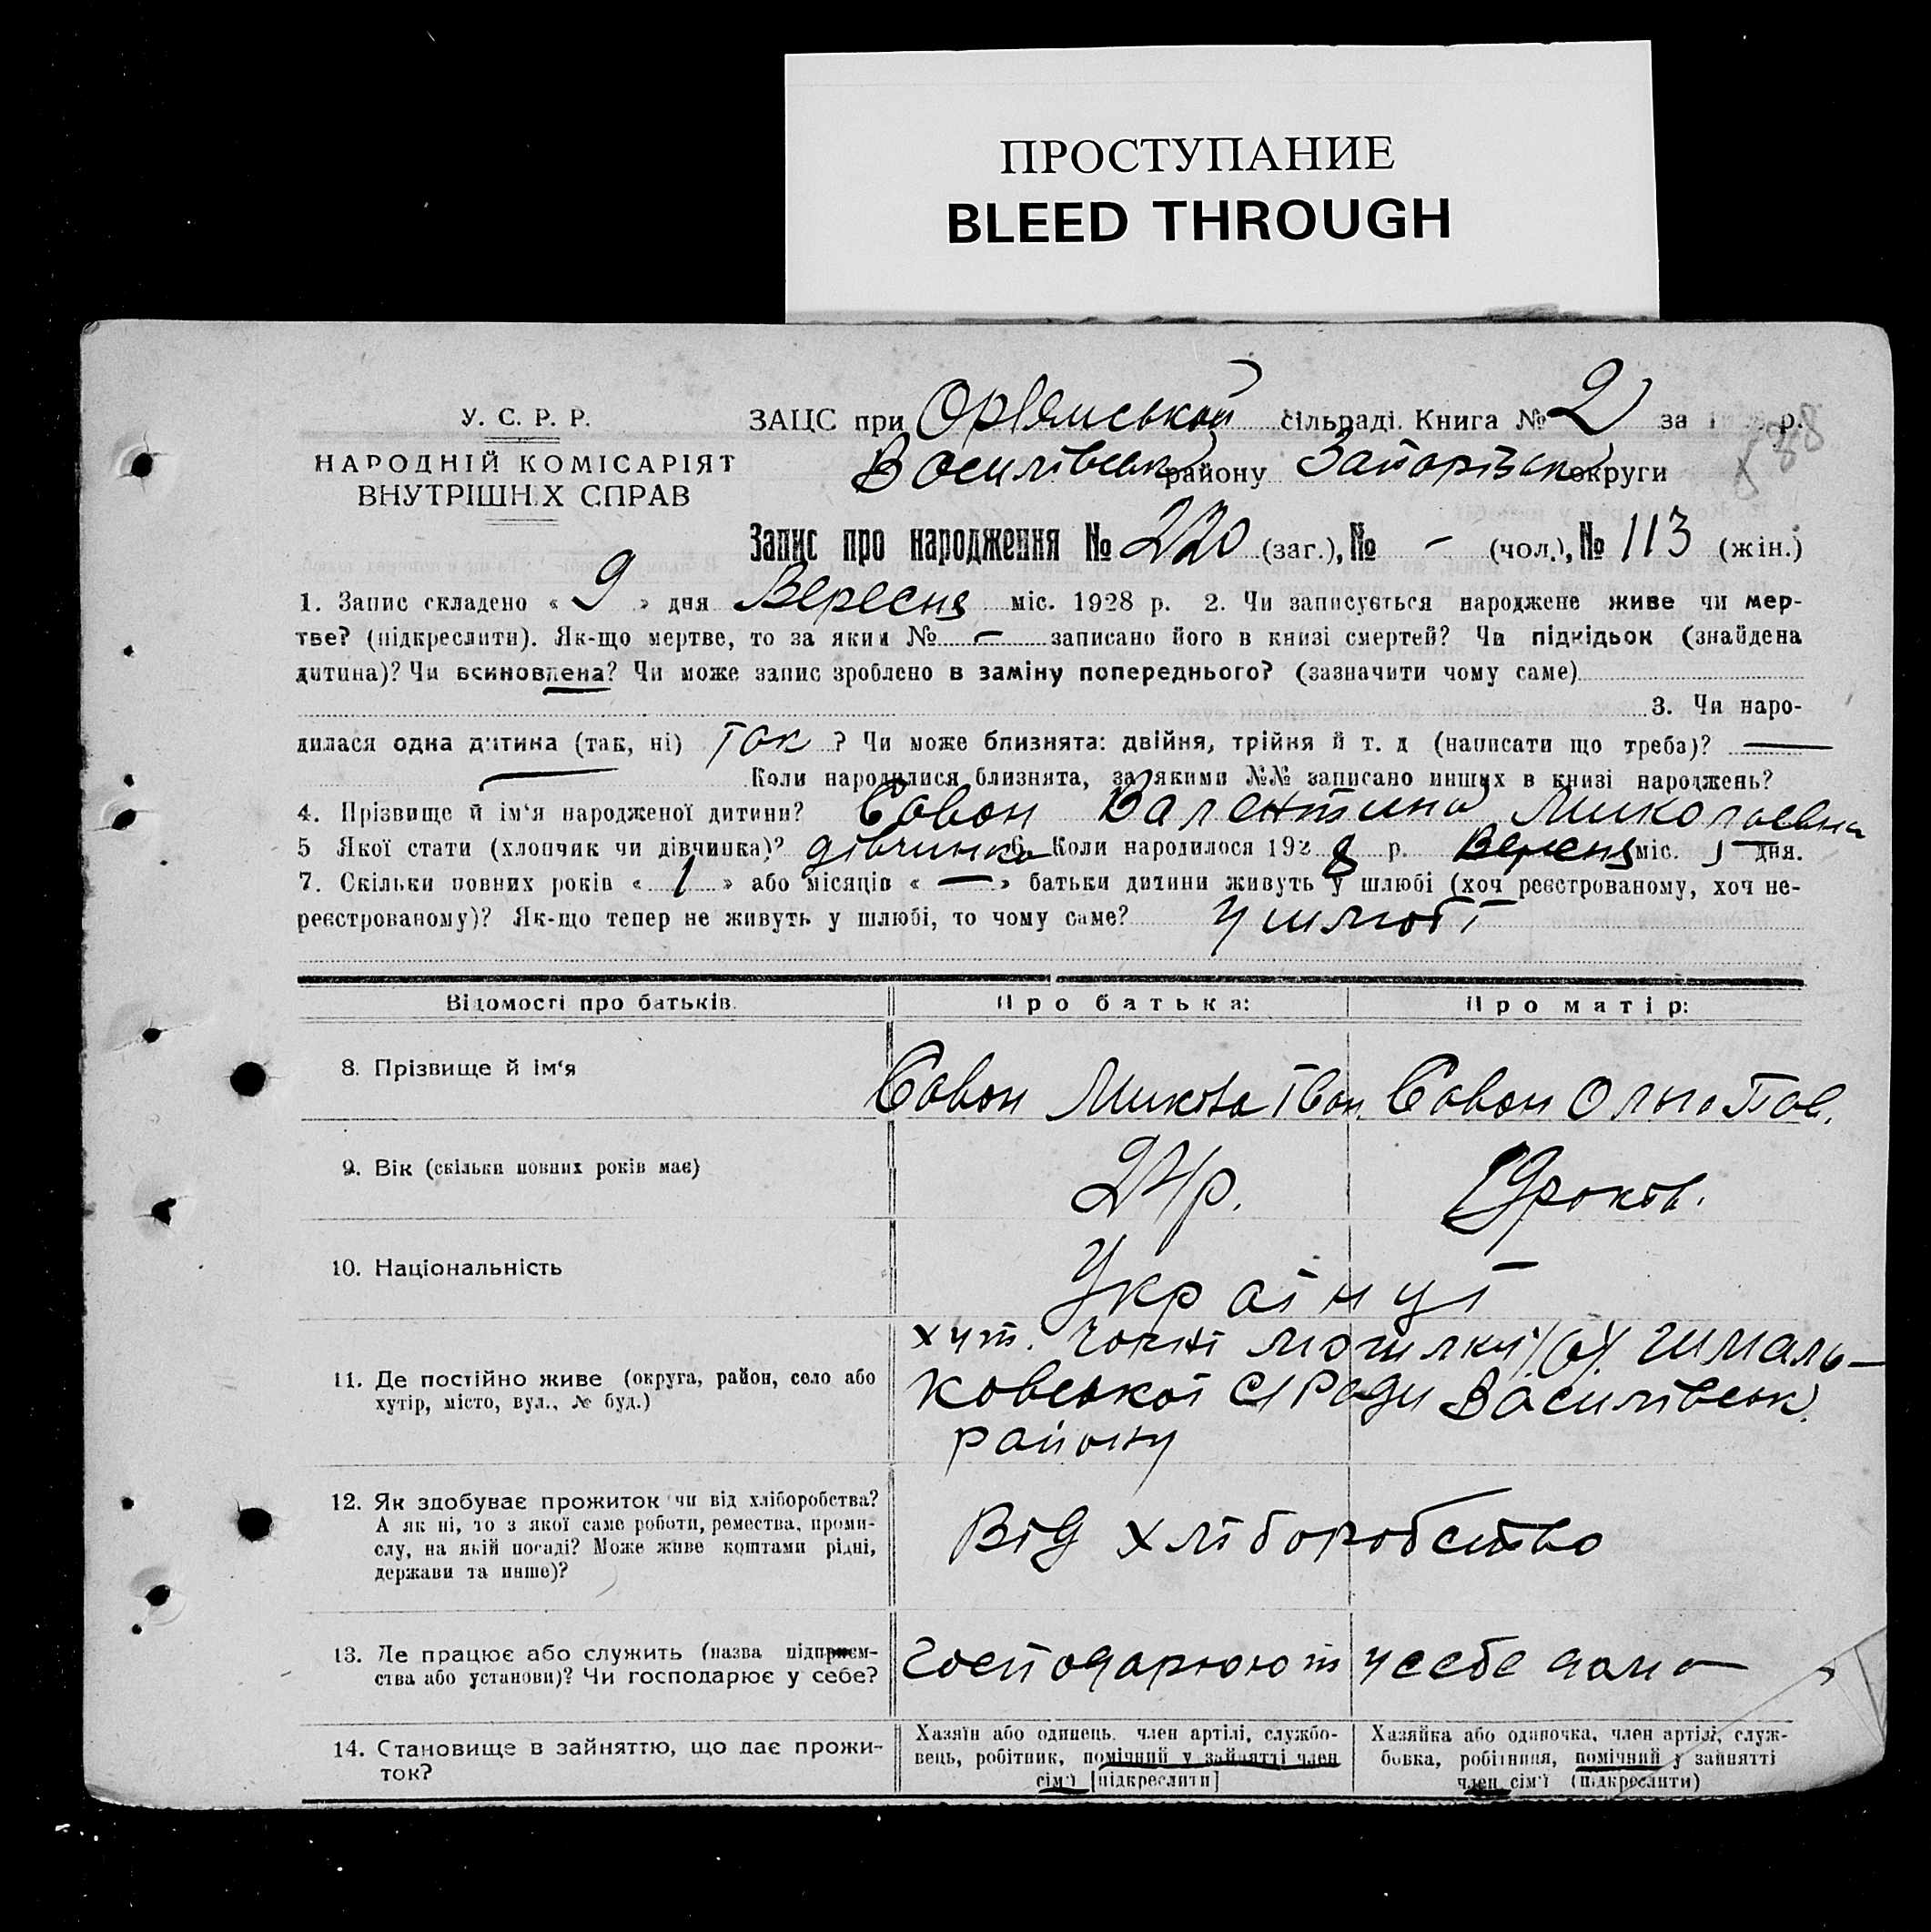 ПРОСТУПАНИЕ
BLEED THROUGH
У. С. Р. Р.
НАРОДНІЙ КОМІСАРІЯТ
ВНУТРІШНІХ СПРАВ
ЗАЦС при Орʼянській сільраді. Книга № 2 за р.
Василівськ району Запорізьк округи
Запис про народження № 220 (заг.), № – (чол.), № 113 (жін.)
1. Запис складено « 9 » дня Вересня міс. 1928 р. 2. Чи записується народжене живе чи мер-
тве? (підкреслити). Як-що мертве, то за яким № — записано його в книзі смертей? Чи підкідьок (знайдена
дитина)? Чи всиновлена? Чи може запис зроблено в заміну попереднього? (зазначити чому саме)
3. Чи наро-
дилася одна дитина (так, ні) Так ? Чи може близнята: двійня, трійня й т. д (написати що треба)? —
— Коли народилися близнята, за якими №№ записано инших в книзі народжень?
4. Прізвище й ім‘я народженої дитини? Савон Валентина Миколаевна
5 Якої стати (хлопчик чи дівчинка)? дівчинка 6. Коли народилося 1928 р. Вересня міс. 5 дня.
7. Скільки повних років « 1 » або місяців « — » батьки дитини живуть у шлюбі (хоч реєстрованому, хоч не-
реєстрованому)? Як-що тепер не живуть у шлюбі, то чому саме? У шлюбі
Відомості про батьків.
Про батька:
Про матір:
8. Прізвище й ім‘я
Савон Микола Іван.
Савон Ольга Пав.
9. Вік (скільки повних років має)
р.
19 років.
10. Національність
Українці
11. Де постійно живе (округа, район, село або
хутір, місто, вул., № буд.)
хут. могилки Шмаль-
ковської С/Ради Василівськ.
району
12. Як здобуває прожиток чи від хліборобства?
А як ні, то з якої саме роботи, ремества, проми-
слу, на якій посаді? Може живе коштами рідні,
держави та инше)?
Від хліборобства
13. Де працює або служить (назва підприєм-
ства або установи)? Чи господарює у себе?
Господарюют у себе дома
14. Становище в зайняттю, що дає прожи-
ток?
Хазяїн або одинець, член артілі, службо-
вець, робітник, помічний у зайнятті член
сім‘ї [підкреслити]
Хазяйка або одиночка, член артілі, служ-
бовка, робітниця, помічний у зайнятті
член сім‘ї (підкреслити)